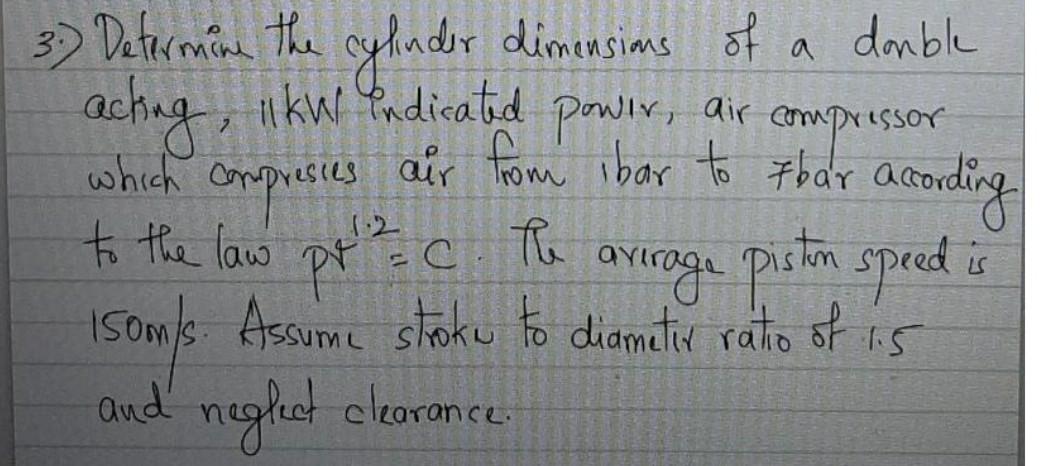 3.) Determine the cylinder dimensions of a double
acting, 11kW indicated power, air compressor
which compresses air from 1bar to 7bar according
to the law pv^1.2 = C. The average piston speed is
150m/s. Assume stroke to diameter ratio of 1.5
and neglect clearance.